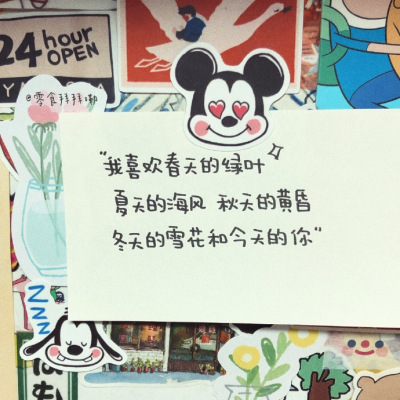 24 hour
OPEN
@零食拜拜嘞
"我喜欢春天的绿叶
夏天的海风 秋天的黄昏
冬天的雪花和今天的你"
ZZZ